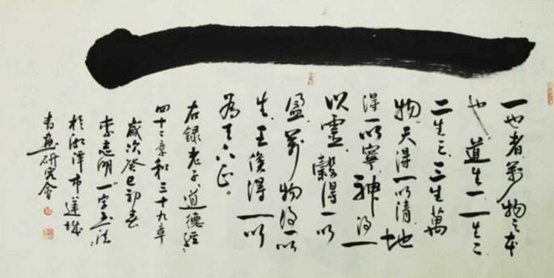 一
一也者萬物之本
也道生一一生二
二生三三生萬
物天得一以清地
得一以寧神得一
以靈穀得一以
盈萬物得一以
生王侯得一以
為天下正
右錄老子道德經
四十二章和三十九章
歲次癸巳初春
李志明一字書法
於湘潭市蓮城
書畫研究會